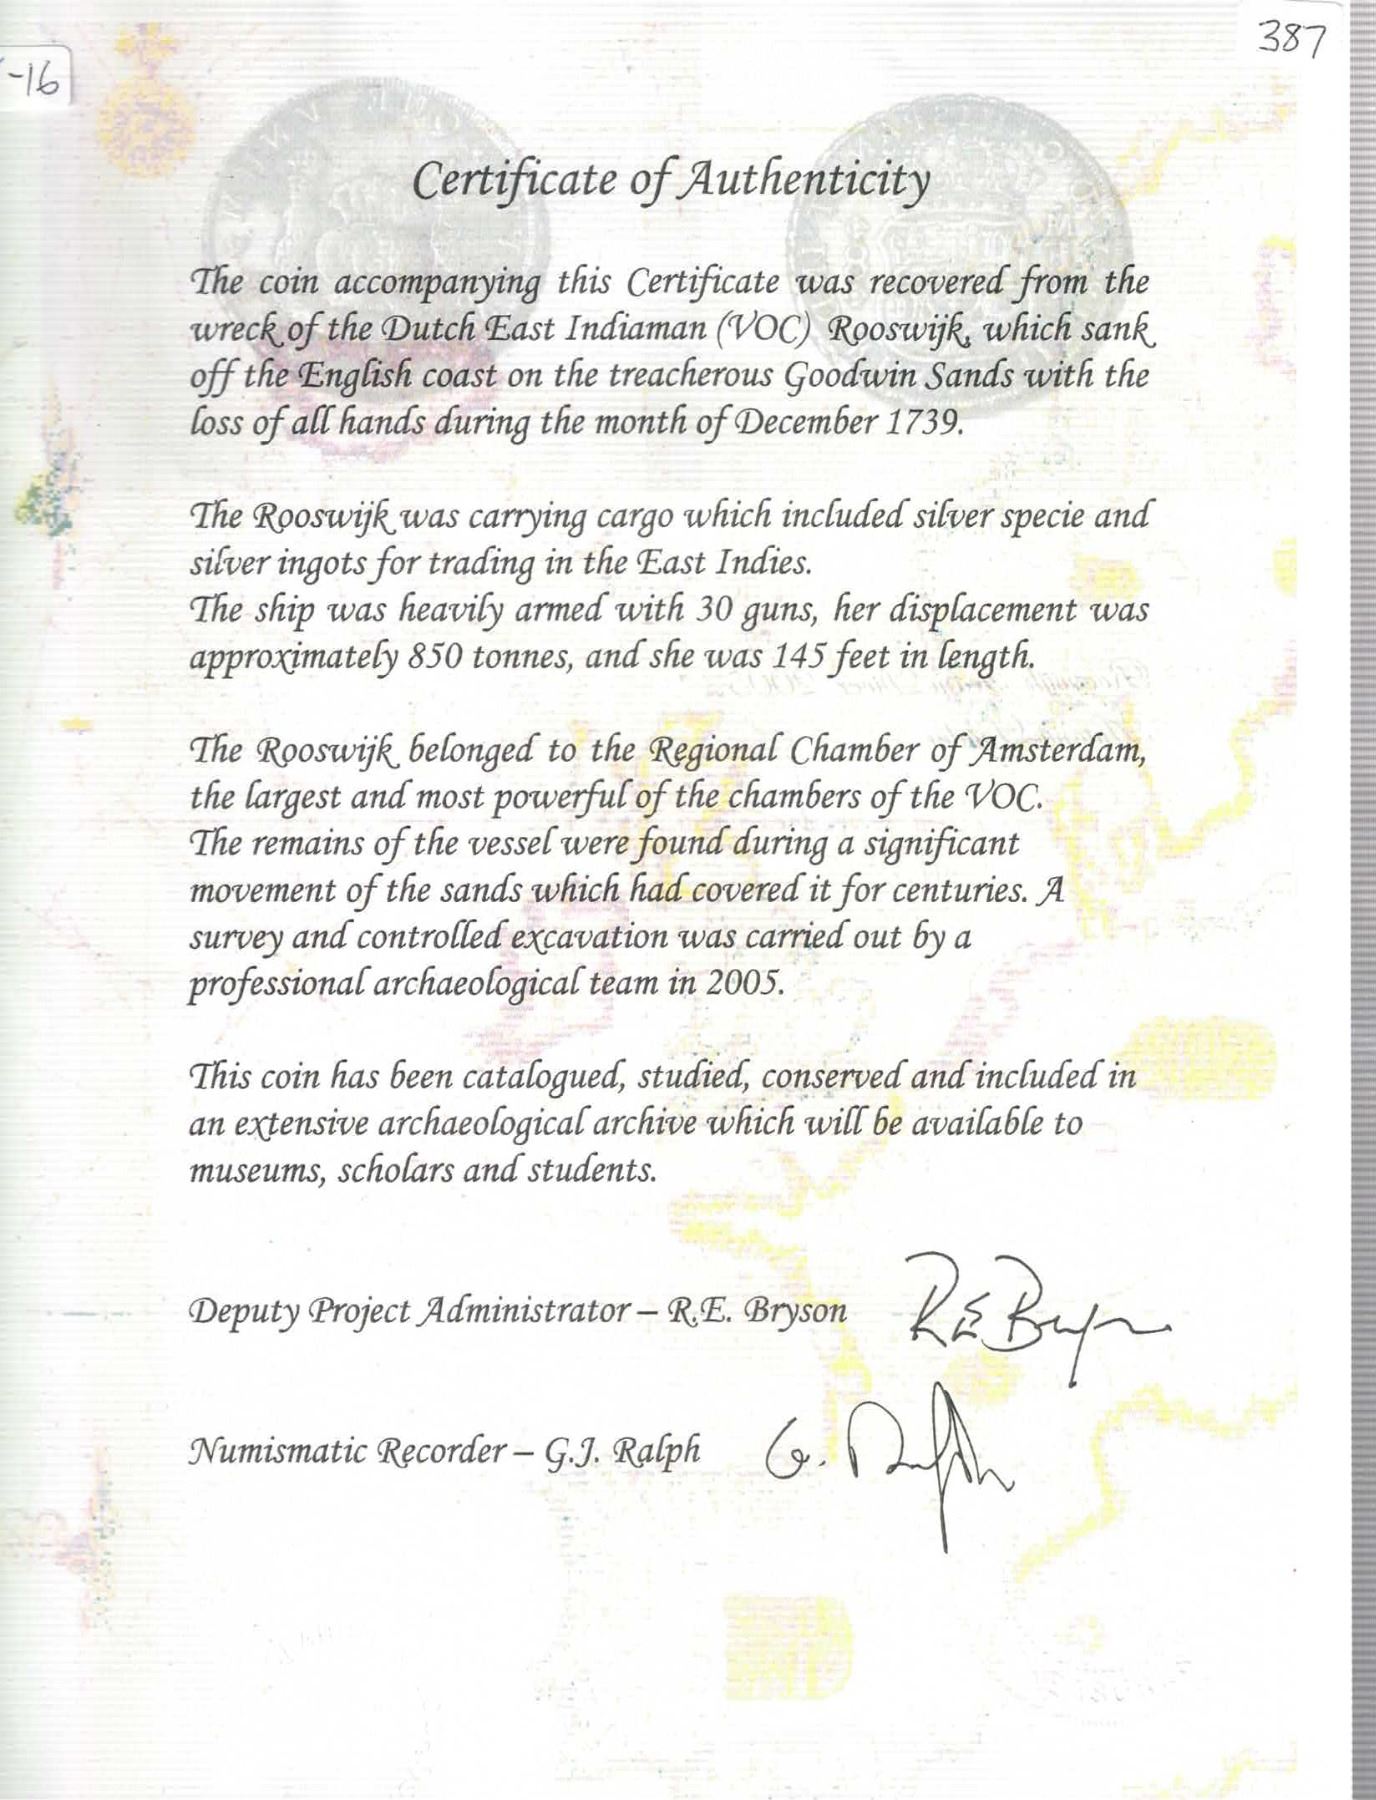 387
-16
Certificate of Authenticity
The coin accompanying this Certificate was recovered from the
wreck of the Dutch East Indiaman (VOC) Rooswijk, which sank
off the English coast on the treacherous Goodwin Sands with the
loss of all hands during the month of December 1739.
The Rooswijk was carrying cargo which included silver specie and
silver ingots for trading in the East Indies.
The ship was heavily armed with 30 guns, her displacement was
approximately 850 tonnes, and she was 145 feet in length.
The Rooswijk belonged to the Regional Chamber of Amsterdam,
the largest and most powerful of the chambers of the VOC.
The remains of the vessel were found during a significant
movement of the sands which had covered it for centuries. A
survey and controlled excavation was carried out by a
professional archaeological team in 2005.
This coin has been catalogued, studied, conserved and included in
an extensive archaeological archive which will be available to
museums, scholars and students.
Deputy Project Administrator – R.E. Bryson R E Bryson
Numismatic Recorder – G.J. Ralph G. Ralph